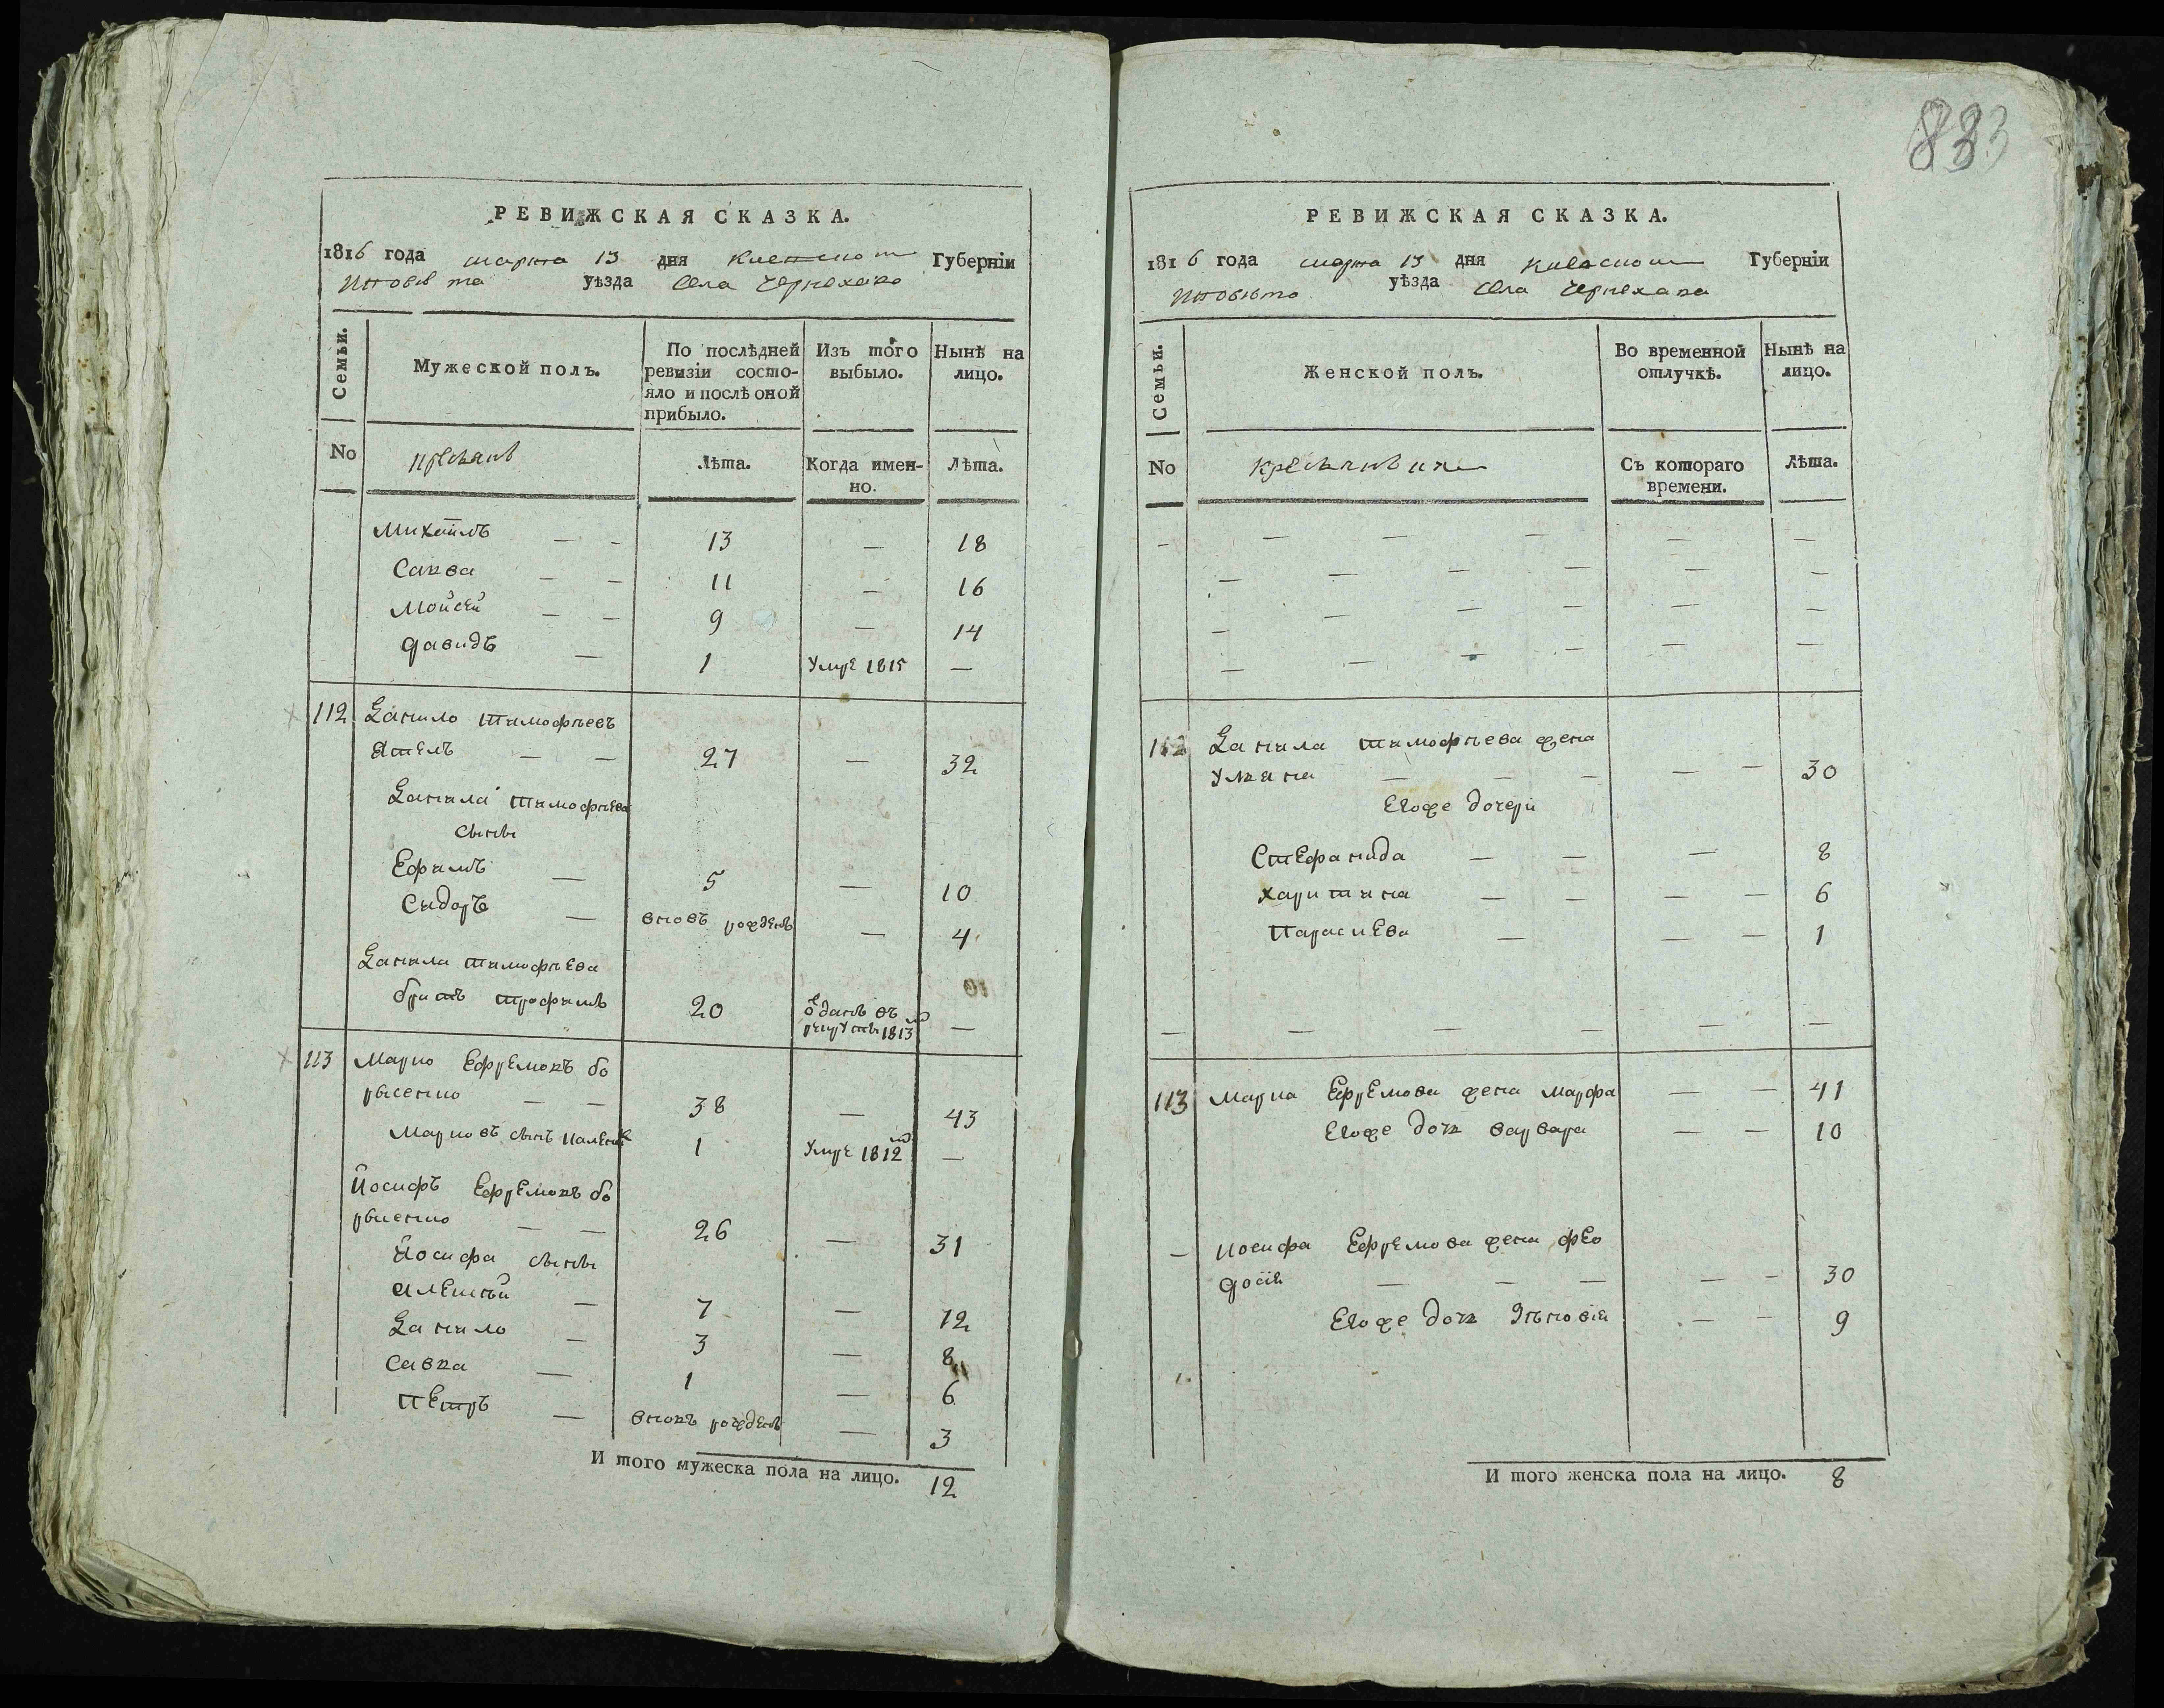 883
РЕВИЖСКАЯ СКАЗКА.
1816 года марта 13 дня Киевской Губернїи
уѣзда Села Чернехова
Семьи.
Мужеской полъ.
По послѣдней ревизїи состо-
яло и послѣ оной
прибыло.
Изъ того
выбыло.
Нынѣ на
лицо.
No
Лѣта.
Когда имен-
но.
Лѣта.
Михаилъ — - 13 — 18
Савва — — 11 — 16
Мойсей — — 9 — 14
Давидъ — 1 Умре 1815 —
112 Данило Тимофѣевъ
— — 27 — 32
Данила Тимофѣева
сыны
Ефимъ — 5 — 10
Сидоръ — вновь рожденъ — 4
Данила Тимофѣева
братъ Трофимъ 20 отданъ въ рекруты 1813 —
113 Марко Ефремовъ Бо
рысенко — — 38 — 43
Марковъ сынъ 1 Умре 1812 —
Йосифъ Ефремовъ Бо
рысенко — — 26 — 31
Йосифа сыны
Алексѣй — 7 — 12
Данило — 3 — 8
Савка — 1 — 6
Петръ — вновь рожденъ — 3
И того мужеска пола на лицо. 12
РЕВИЖСКАЯ СКАЗКА.
1816 года марта 13 дня Киевской Губернїи
уѣзда Села Чернехова
Семьи.
Женской полъ.
Во временной
отлучкѣ.
Нынѣ на
лицо.
No
Съ котораго
времени.
Лѣта.
112 Данила Тимофѣева жена
Ульяна — — — — — 30
Егоже дочери
Стефанида — — — 8
Харитина — — — — 6
Параскева — — — 1
113 Марка Ефремова жена Марфа — — 41
Егоже дочь Варвара — — 10
— Иосифа Ефремова жена Фео
досїя — — — — - 30
Егоже дочь Зѣновїя — — 9
И того женска пола на лицо. 8